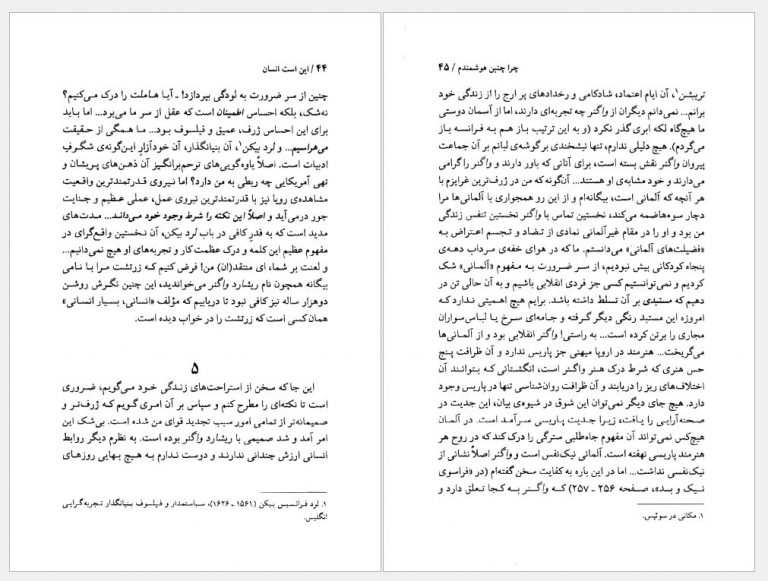 ۴۴ / این است انسان
چنین از سر ضرورت به لودگی بپردازد! ـ آیا هاملت را درک می‌کنیم؟
نه‌شک، بلکه احساس اطمینان است که عقل از سر ما می‌برد... اما باید
برای این احساس ژرف، عمیق و فیلسوف بود... ما همگی از حقیقت
می‌هراسیم... و لرد بیکن۱، آن بنیانگذار، آن خودآزار این‌گونه‌ی شگرف
ادبیات است. اصلاً یاوه‌گویی‌های ترحم‌برانگیز آن ذهن‌های پریشان و
تهی آمریکایی چه ربطی به من دارد؟ اما نیروی قدرتمندترین واقعیت
مشاهده‌ی رویا نیز با قدرتمندترین نیروی عمل، عملی عظیم و جنایت
جور درمی‌آید و اصلاً این نکته را شرط وجود خود می‌داند... مدت‌های
مدید است که به قدر کافی در باب لرد بیکن، آن نخستین واقع‌گرای در
مفهوم عظیم این کلمه و درک عظمت کار و تجربه‌های او هیچ نمی‌دانیم...
و لعنت بر شما، ای منتقد(ان) من! فرض کنیم کـه زرتشت مـرا بـا نامی
بیگانه همچون نام ریشارد واگنر می‌خواندید، این چنین نگرش روشن
دوهزار ساله نیز کافی نبود تا دریابیم که مؤلف «انسانی، بسیار انسانی»
همان کسی است که زرتشت را در خواب دیده است.
۵
این جا که سخن از استراحت‌های زنـدگی خـود مـی‌گویم، ضـروری
است تا نکته‌ای را مطرح کنم و سپاس بر آن امری گـویم کـه ژرف‌تـر و
صمیمانه‌تر از تمامی امور سبب تجدید قوای من شده است. بی‌شک این
امر آمد و شد صمیمی با ریشارد واگنر بوده است. به نظرم دیگر روابط
انسانی ارزش چندانی ندارنـد و دوست نـدارم بـه هـیچ بـهایی روزهای
۱. لرد فرانسیس بیکن (۱۵۶۱ ـ ۱۶۲۶)، سیاستمدار و فیلسوف بنیانگذار تجربه‌گرایی
انگلیس.
چرا چنین هوشمندم / ۴۵
تریبشن۱، آن ایام اعتماد، شادکامی و رخدادهای پر ارج را از زندگی خود
برانم... نمی‌دانم دیگران از واگنر چه تجربه‌ای دارند، اما از آسمان دوستی
ما هیچ‌گاه لکه ابری گذر نکرد (و به این ترتیب بـاز هـم بـه فـرانسـه بـاز
می‌گردم). هیچ دلیلی ندارم، تنها نیشخندی بر گوشه‌ی لبانم بر آن جماعت
پیروان واگنر نقش بسته است، برای آنانی که باور دارند و واگنر را گرامی
می‌دارند و خود مشابه‌ی او هستند... آن‌گونه که من در ژرف‌ترین غرایزم با
هر آنچه که آلمانی است، بیگانه‌ام و از این رو همجواری با آلمانی‌ها مرا
دچار سوءهاضمه می‌کند، نخستین تماس با واگنر نخستین تنفس زندگی
من بود و او را در مقام غیرآلمانی نمادی از تـضاد و تـجسم اعتراض بـه
«فضیلت‌های آلمانی» می‌دانستم. ما که در هوای خفه‌ی سرداب دهه‌ی
پنجاه کودکانی بیش نبودیم، از سـر ضـرورت بـه مـفهوم «آلمـانی» شک
کردیم و نمی‌توانستیم کسی جز فردی انقلابی باشیم و به آن حالی تن در
دهیم که مستبدی بر آن تسلط داشته باشد. برایم هیچ اهمیتی نـدارد کـه
امروزه این مستبد رنگی دیگر گرفته و جامه‌ای سـرخ یـا لبـاس‌سواران
مجاری را برتن کرده است... به راستی! واگنر انقلابی بود و از آلمانی‌ها
می‌گریخت... هنرمند در اروپا میهنی جز پاریس ندارد و آن ظرافت پنج
حس هنری که شرط درک هنر واگنر است، انگشتانی کـه بـتوانند آن
اختلاف‌های ریز را دریابند و آن ظرافت روان‌شناسی تنها در پاریس وجود
دارد. هیچ جای دیگر نمی‌توان این شوق در شیوه‌ی بیان، این جدیت در
صـحنه‌آرایـی را یـافت، زیـرا جدیت پـاریسی سـرآمد است. در آلمـان
هیچ‌کس نمی‌تواند آن مفهوم جاه‌طلبی سترگی را درک کند که در روح هر
هنرمند پاریسی نهفته است. آلمانی نیک‌نفس است و واگنر اصلاً نشانی از
نیک‌نفسی نداشت... اما در این باره به کفایت سخن گفته‌ام (در «فراسوی
نیـک و بـد»، صفحه ۲۵۶ ـ ۲۵۷) کـه واگـنر بـه کـجا تـعلق دارد و
۱. مکانی در سوئیس.